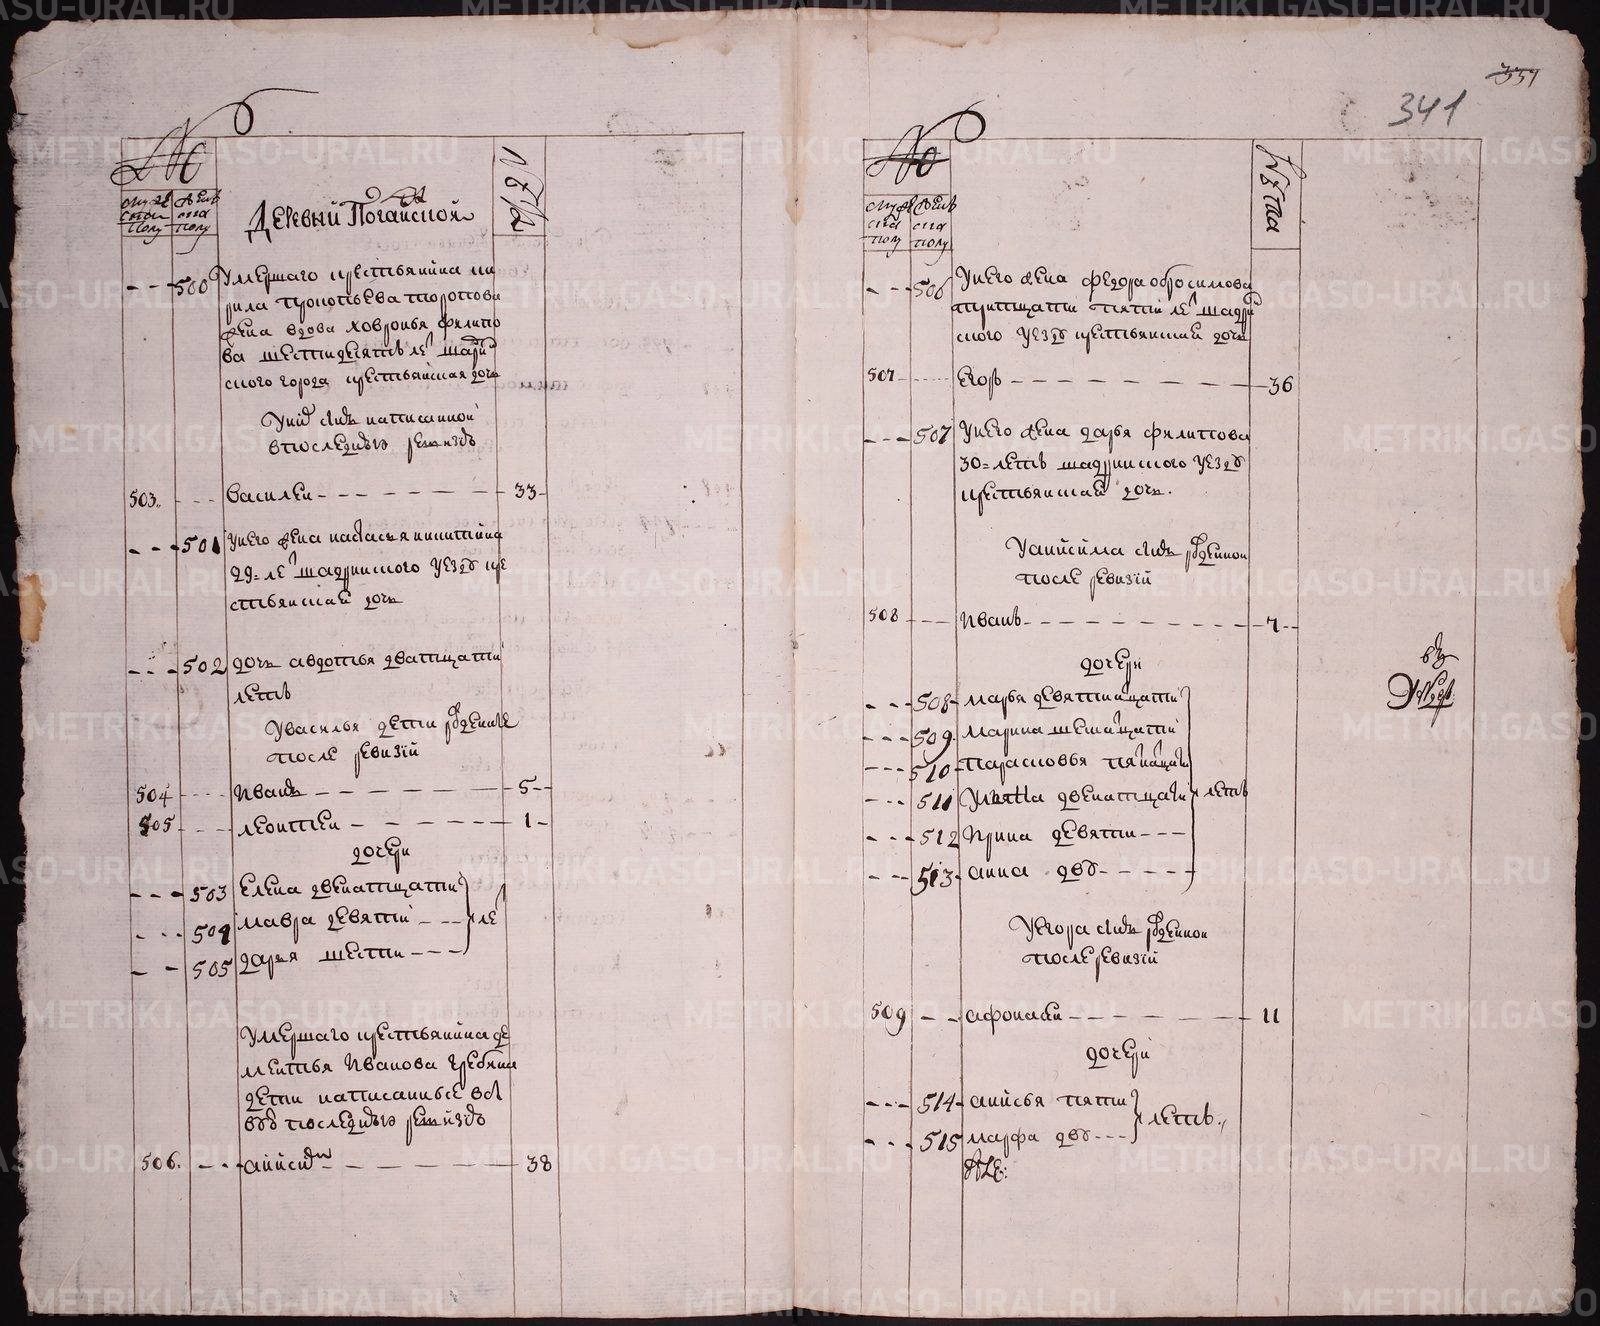 351
341
№
мужеска полу
женска полу
Деревни Погайской
Лѣта
500 Умершаго крестьянина ки
рила прокопьева торопова
жена вдова ховронья филипо
ва шестидесятъ лѣ шадрин
ского города крестьянская дочь
У нихъ сынъ написанной
в последнюю ревизию
503 Василей 33
501 У него жена настасья никитина
29 = лѣ шадринского уезду кре
стьянская дочь
502 дочь авдотья дватцати
летъ
У василья дети рожденные
после ревизии
504 Иванъ 5
505 леонтей 1
дочери
503 Елена двенатцати
504 мавра девяти лѣ
505 дарья шести
Умершаго крестьянина де
ментья Иванова
дети написанные в
последнюю ревизию
506 анисим 38
№
мужеска полу
женска полу
Лѣта
506 У него жена федора обросимова
тритцати пяти лѣ шадрин
ского уезду крестьянская дочь
507 Егоръ 36
507 У него жена дарья филипова
30 = летъ шадринского уезду
крестьянская дочь
У анисима сынъ рожденной
после ревизии
508 Иванъ 7
дочери
508 марья девятнатцати
509 марина шеснатцати
510 парасковья пятнатцати
511 двенатцати летъ
512 Ирина девяти
513 анна дву
У егора сынъ рожденной
после ревизии
509 афонасей 11
дочери
514 анисья пяти
515 марфа дву летъ